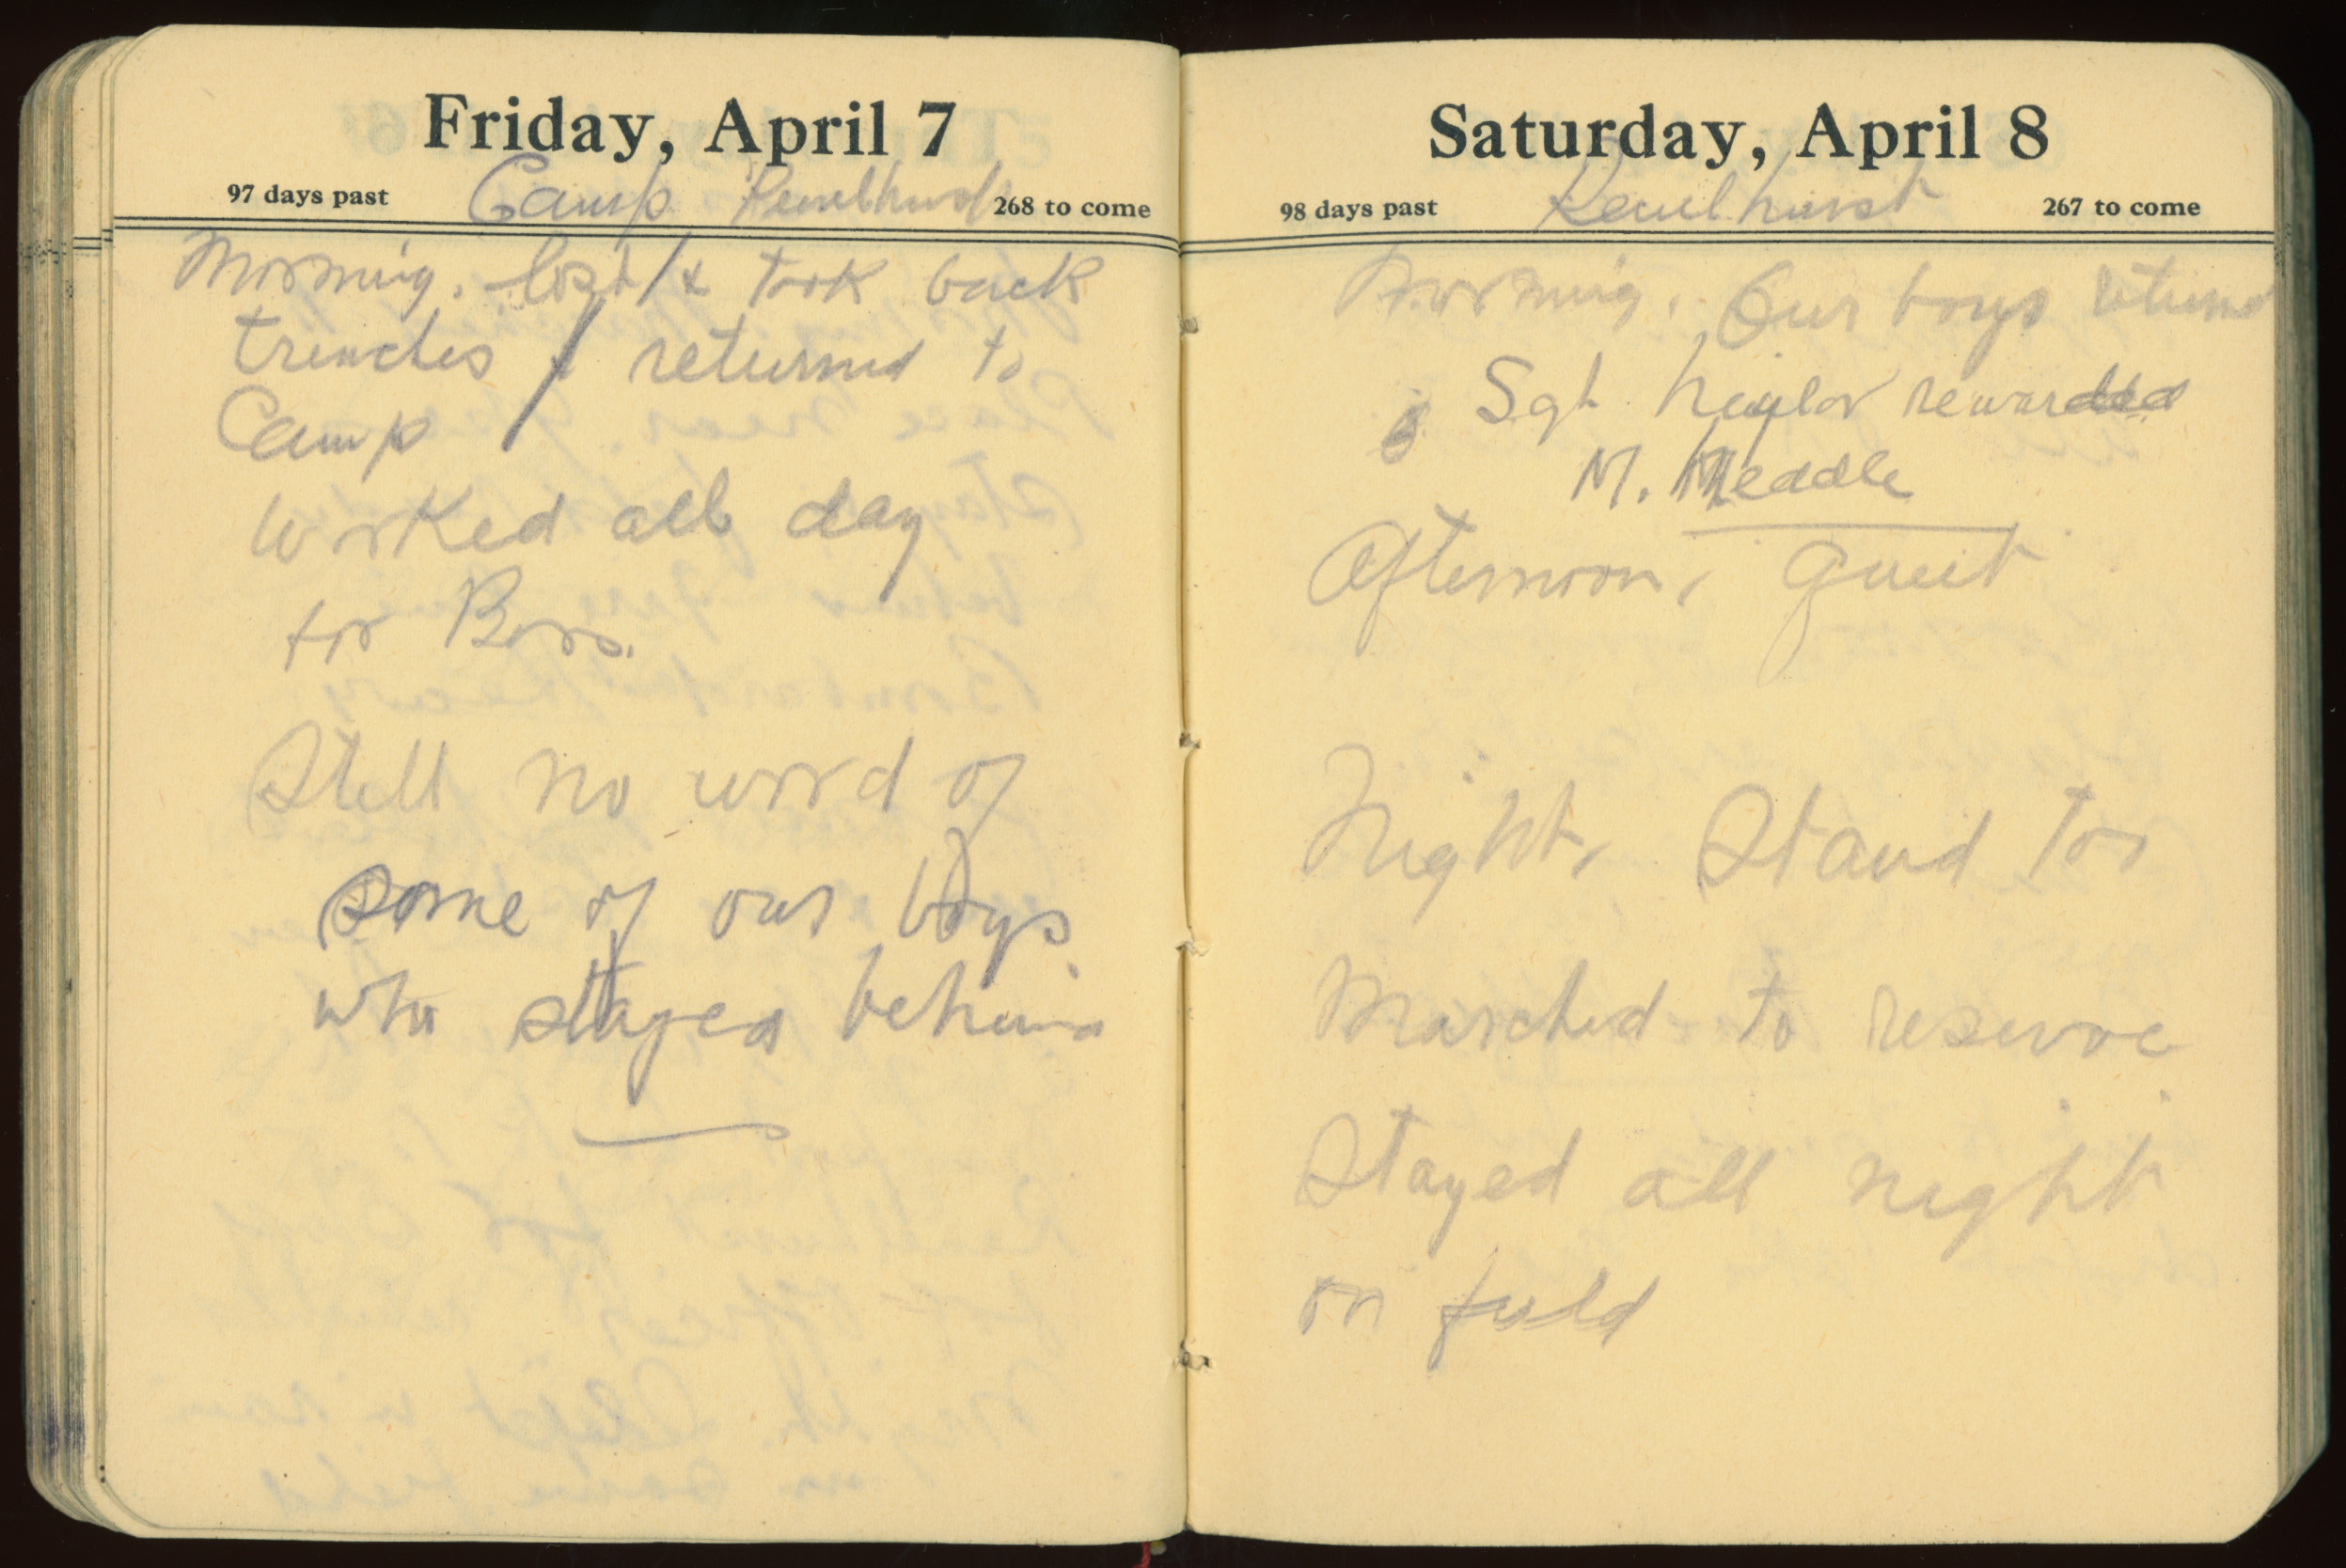 Friday, April 7
97 days past Camp 268 to come
Morning. lost & took back
trenches & returned to
Camp
Worked all day
for Boss.
Still no word of
some of our boys
who stayed behind
Saturday, April 8
98 days past 267 to come
Morning. Our boys returned
Sgt. rewarded
M. Meddle
Afternoon, Quiet
Night, Stand too
Marched to reserve
Stayed all night
on field